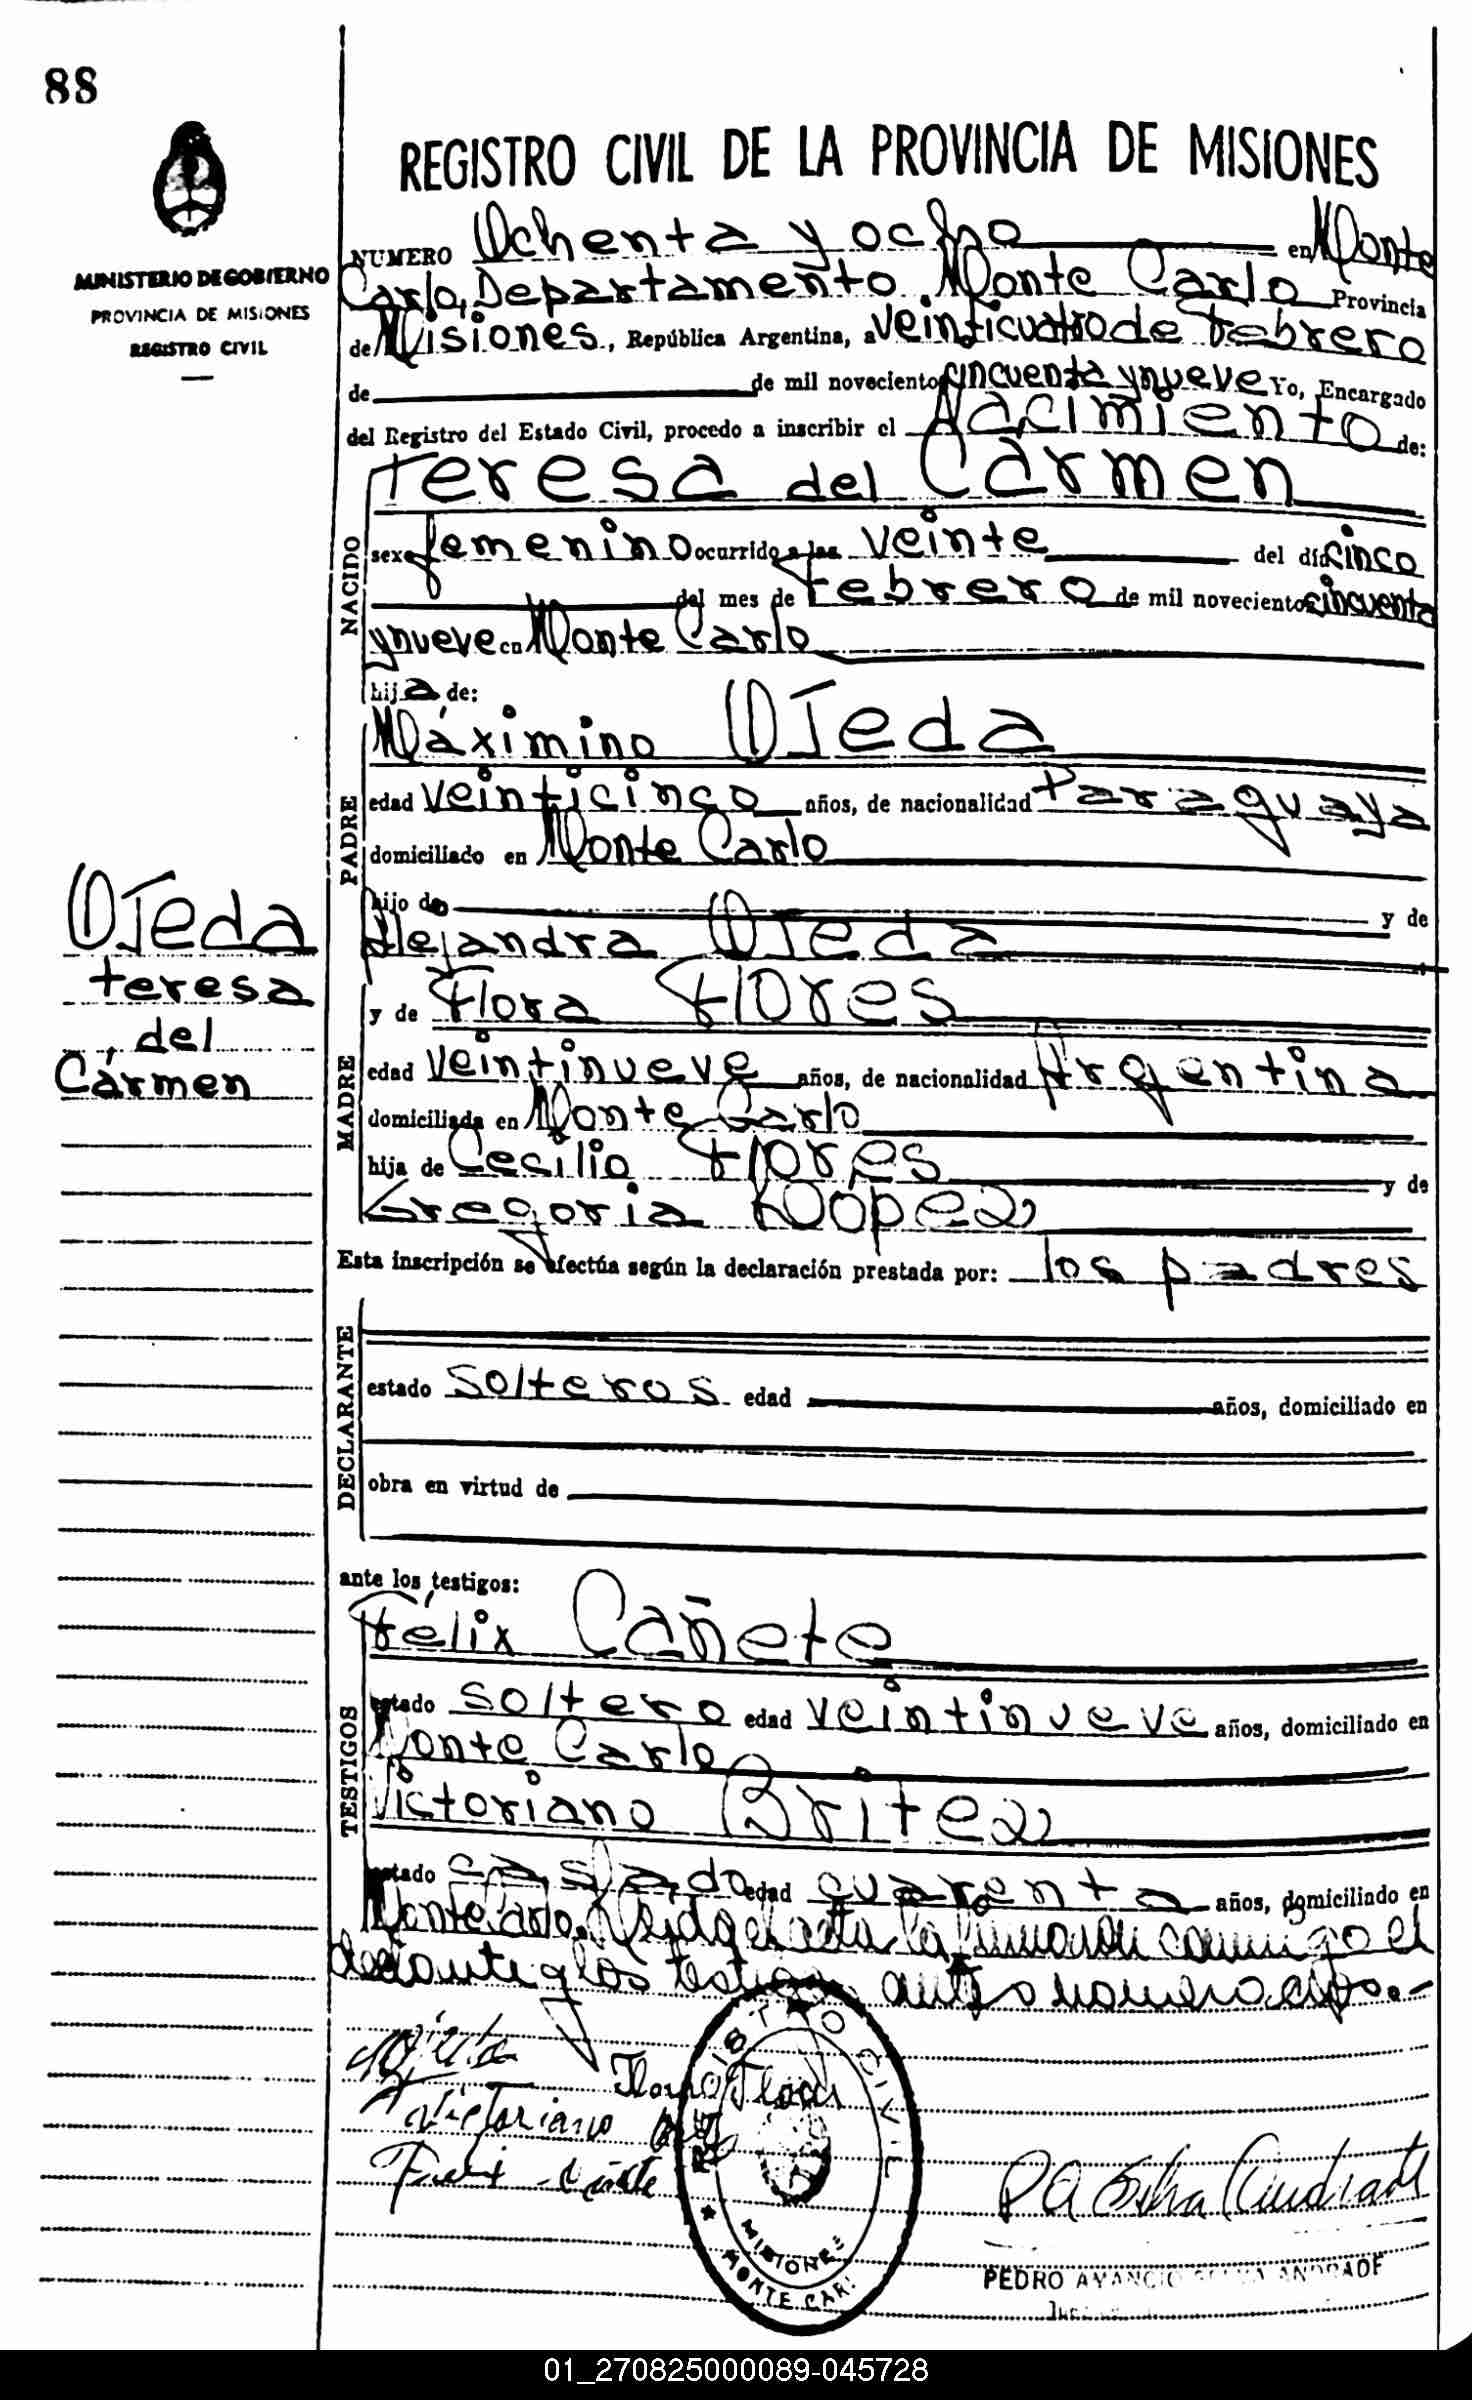 88
REGISTRO CIVIL DE LA PROVINCIA DE MISIONES
MINISTERIO DE GOBIERNO
PROVINCIA DE MISIONES
REGISTRO CIVIL
NUMERO Ochenta y ocho en Monte
Carlo, Departamento Monte Carlo Provincia
de Misiones, República Argentina, a veinticuatro de Febrero
de de mil novecientos cincuenta y nueve Yo, Encargado
del Registro del Estado Civil, procedo a inscribir el Nacimiento de:
NACIDO
Teresa del Cármen
sexo femenino ocurrido a las veinte del día cinco
del mes de Febrero de mil novecientos cincuenta
y nueve en Monte Carlo
hija de:
PADRE
Máximino OJeda
edad veinticinco años, de nacionalidad Paraguaya
domiciliado en Monte Carlo
hijo de y de
Alejandra OJeda
OJeda
Teresa
del
Cármen
MADRE
y de Flora Flores
edad veintinueve años, de nacionalidad Argentina
domiciliada en Monte Carlo
hija de Cecilio Flores y de
Gregoria López
Esta inscripción se efectúa según la declaración prestada por: los padres
DECLARANTE
estado solteros edad años, domiciliado en
obra en virtud de
ante los testigos:
TESTIGOS
Félix Cañete
estado soltero edad veintinueve años, domiciliado en
Monte Carlo
Victoriano Britez
estado casado edad cuarenta años, domiciliado en
Monte Carlo. Leida el acta la firmaron conmigo el
declarante y los testigos
Flora Flores
Victoriano
REGISTRO CIVIL
MISIONES
MONTE CARL
PEDRO AMANCIO SILVA ANDRADE
01_270825000089-045728